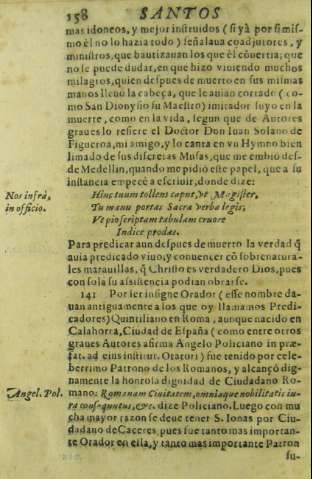 158 SANTOS
mas idoneos, y mejor instruidos (si yà por simis-
mo èl no lo hazia todo) señalaua coadjutores, y
ministros, que bautizauan los que èl cõuertia; que
no se puede dudar, en que hizo viviendo muchos
milagros, quien despues de muerto en sus mismas
manos lleuò la cabeça, que le auian cortado (co-
mo San Dionysio su Maestro) imitador suyo en la
muerte, como en la vida, segun que de Autores
graues lo refiere el Doctor Don Iuan Solano de
Figueroa, mi amigo, y lo canta en vn Hymno bien
limado de sus discretas Musas, que me embiò des-
de Medellin, quando me pidiò este papel, que a su
instancia empecè a escriuir, donde dize:
Nos infrà, Hinc tuum tollens caput, vt Magister,
in officio. Tu manu portas Sacra verba legis;
Ve pio scriptam tabulam cruore
Indice prodas.
Para predicar aun despues de muerto la verdad q̃
auia predicado viuo, y conuencer cõ sobrenatura-
les marauillas, q̃ Christo es verdadero Dios, pues
con sola su assistencia podian obrarse.
141 Por ser insigne Orador (esse nombre da-
uan antiguamente a los que oy llamamos Predi-
cadores) Quintiliano en Roma, aunque nacido en
Calahorra, Ciudad de España (como entre otros
graues Autores afirma Angelo Policiano in præ-
fat. ad eius institut. Oratori) fue tenido por cele-
berrimo Patrono de los Romanos, y alcançò dig-
namente la honrosa dignidad de Ciudadano Ro-
Angel. Pol. mano: Romanam Ciuitatem, omniaque nobilitatis iu-
ra consequutus, &c. dize Policiano. Luego con mu
cha mayor razon se deue tener S. Ionas por Ciu-
dadano de Caceres, pues fue tanto mas importan-
te Orador en ella, y tanto mas importante Patron
su-